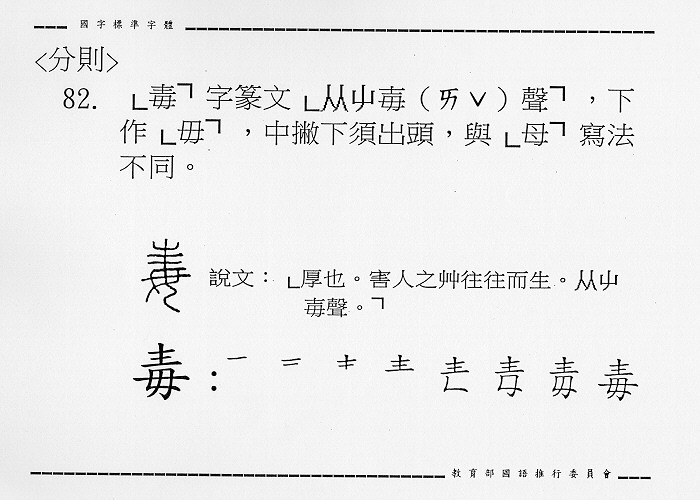 國字標準字體
<分則>
82. 「毒」字篆文「从屮毐（ㄞˇ）聲」，下
作「毋」，中撇下須出頭，與「母」寫法
不同。
說文：「厚也。害人之艸往往而生。从屮
毐聲。」
毒：
教育部國語推行委員會